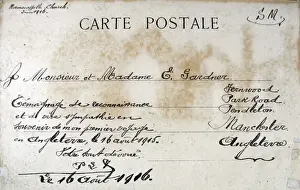 Church.
1916.
CARTE POSTALE
A Monsieur et Madame E. Gardner
Fernwood
Park Road
Pendleton
Manchester
Angleterre
Témoignage de reconnaissance
et de vive sympathie en
souvenir de mon premier
en Angleterre le 16 août 1915.
Votre tout dévoué
Le 16 août 1916.